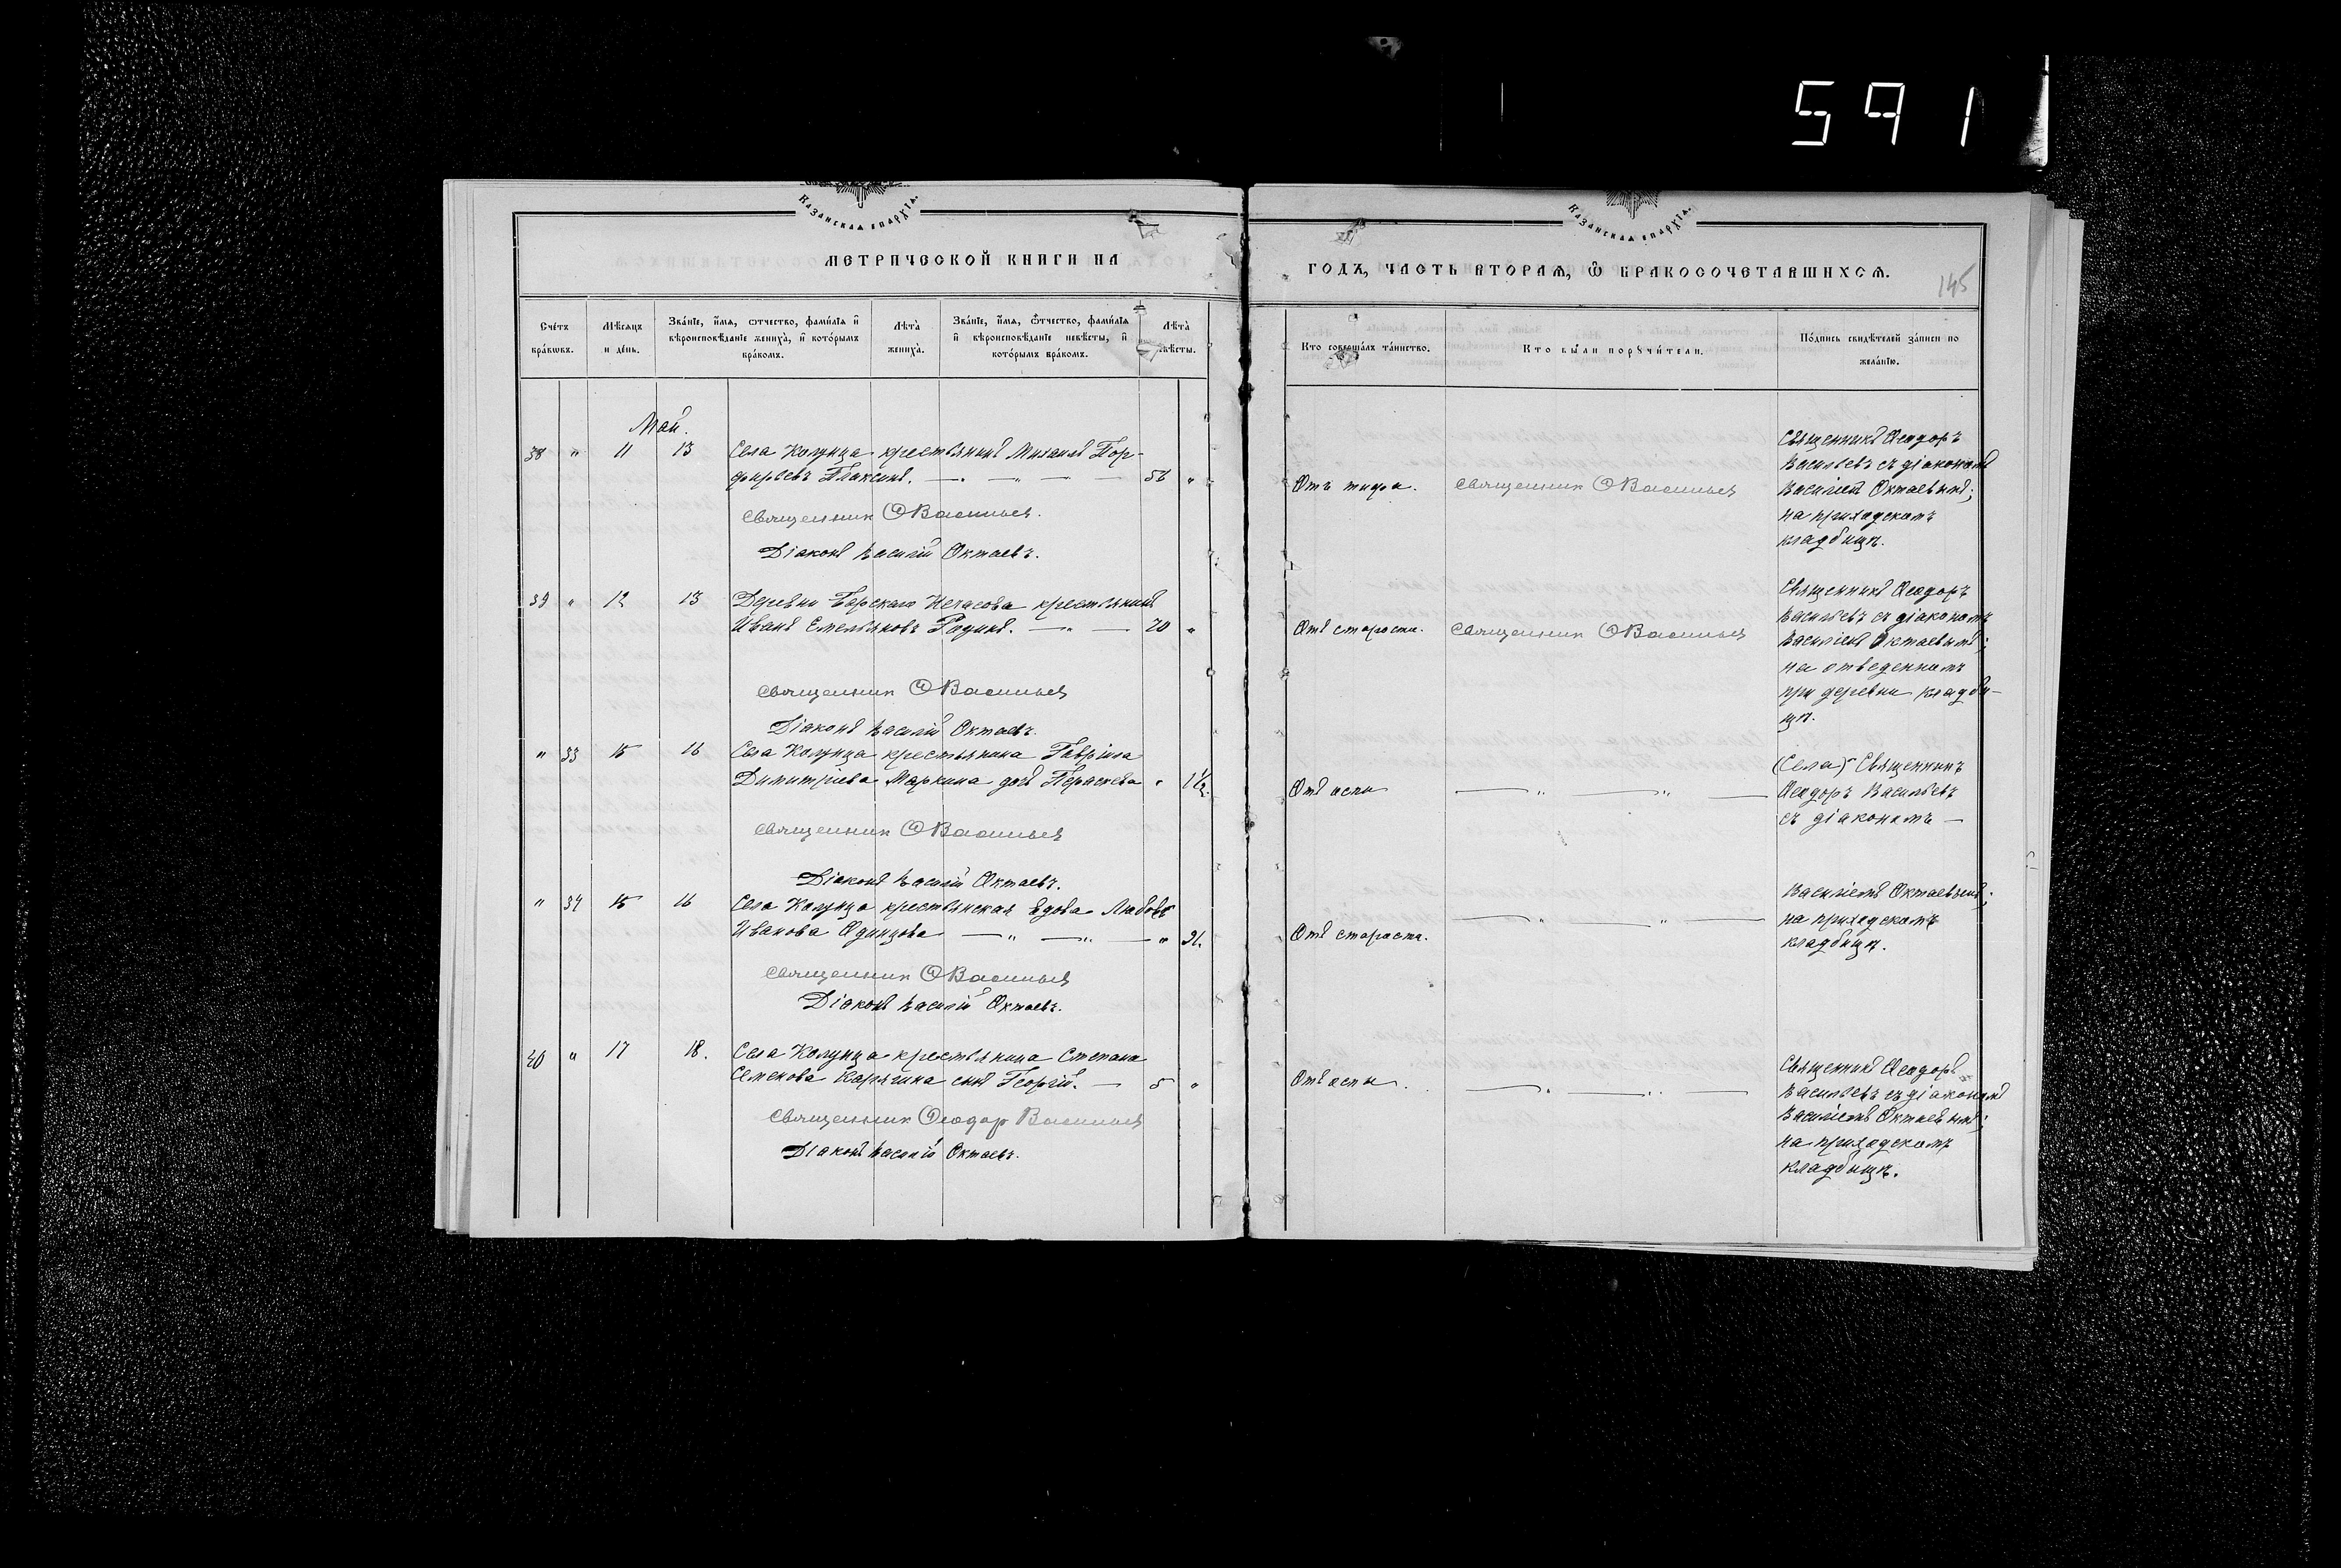 591
Казанская епархїа.
Казанская епархїа.
МЕТРИЧЕСКОЙ КНИГИ НА
ГОДЪ, ЧАСТЬ ВТОРАѦ, Ѿ БРАКОСОЧЕТАВШИХСѦ.
145
Сче́тъ бра́кѡвъ.
Мѣ́сѧцъ и де́нь.
Зва́нїе, и҆́мѧ, ѻтчество, фами́лїѧ и҆ вѣроисповѣ́данїе жениха̀, и҆ кото́рымъ бра́комъ.
Лѣта̀ жениха̀.
Зва́нїе, и҆́мѧ, ѻ҆́тчество, фами́лїѧ и҆ вѣроисповѣ́данїе невѣ́сты, и҆ кото́рымъ бра́комъ.
Лѣта̀ невѣ́сты.
Кто совершáлъ та́инство.
Кто бы́ли порꙋчи́тели.
По́дпись свидѣ́телей за́писи по жела́нїю.
Май.
38 " 11 13 Села крестьянинъ Михаилъ Пор-
фирьевъ Плаксинъ. 56 "
Священник Ѳ Васильев.
Діаконъ Василій Октаевъ.
Отъ тифа. Священник Ѳ Васильев
Священникъ Ѳеодоръ
Васильевъ съ діакономъ
Василіемъ Октаевымъ;
на приходскомъ
кладбищѣ.
39 " 12 13 Деревни крестьянинъ
Иванъ Емельяновъ Родинъ. 70 "
Священник Ѳ Васильев
Діаконъ Василій Октаевъ.
Отъ старости. Священник Ѳ Васильев
Священникъ Ѳеодоръ
Васильевъ съ діакономъ
Василіемъ Октаевымъ;
на отведенномъ
при деревни кладби-
щѣ.
" 33 15 16 Села крестьянина Гавріила
Димитріева Маркина дочь " 1 1/2.
Священник Ѳ Васильев
Діаконъ Василій Октаевъ.
Отъ оспы
(Села) Священникъ
Ѳеодоръ Васильевъ
съ діакономъ —
" 34 15 16 Села крестьянская вдова Любовь
Иванова Одинцова "
Священник Ѳ Васильев
Діаконъ Василій Октаевъ.
Отъ старости.
Василіемъ Октаевымъ;
на приходскомъ
кладбищѣ.
40 " 17 18. Села крестьянина Степана
Семенова Корягина сынъ Георгій. — 5 "
Священник Ѳеодор Васильев
Діаконъ Василій Октаевъ.
Отъ оспы.
Священникъ Ѳеодоръ
Васильевъ съ діакономъ
Василіемъ Октаевымъ;
на приходскомъ
кладбищѣ.